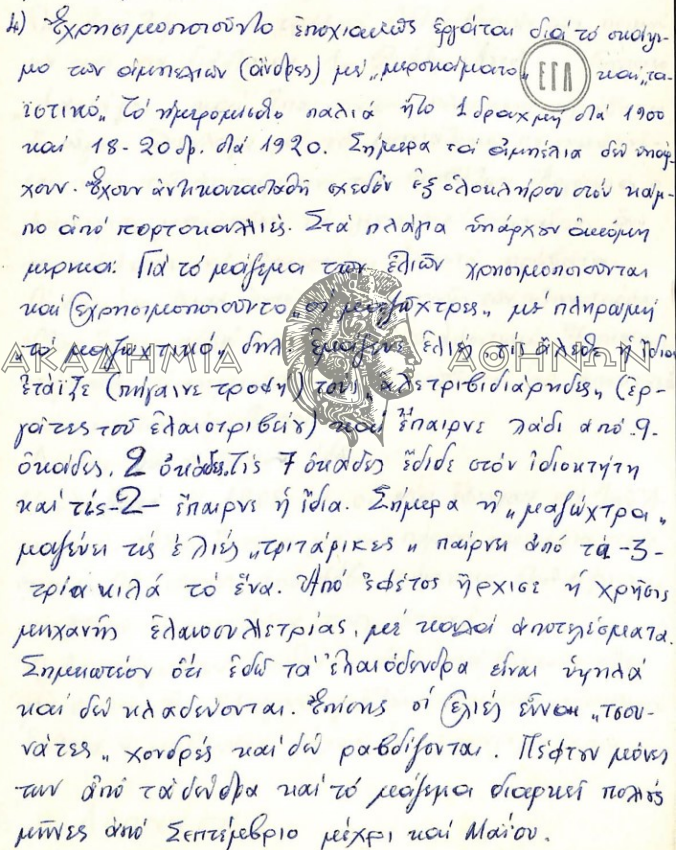 4) Ἐχρησιμοποιοῦντο ἐποχιακῶς ἐργάται διά τό σκάψι-
μο τῶν ἀμπελιῶν (ἄνδρες) μέ „μεροκάματο„ καί „τα-
ϊστικό„ Τό ἡμερομίσθιο παλιά ἦτο 1 δραχμή στά 1900
καί 18-20 δρ. στά 1920. Σήμερα τά ἀμπέλια δέν ὑπάρ-
χουν. Ἔχουν ἀντικατασταθῆ σχεδόν ἐξ ὁλοκλήρου στόν κάμ-
πο ἀπό πορτοκαλλιές. Στά πλάγια ὑπάρχουν ἀκόμη
μερικά. Γιά τό μάζεμα τῶν ἐλιῶν χρησιμοποιοῦνται
καί ἐχρησιμοποιοῦντο „οἱ μαζώχτρες„ μέ πληρωμή
ΑΚΑΔΗΜΙΑ ΑΘΗΝΩΝ
„τό μαζωχτικό„ δηλ. ἐμάζευε ἐλιές, τίς ἄλεθε ἡ ἴδια
ἐτάϊζε (πήγαινε τροφή) τούς „ἀλετριβιδιάρηδες„ (ἐρ-
γάτες τοῦ ἐλαιοτριβείου) καί ἔπαιρνε λάδι ἀπό -9-
ὀκάδες, 2 ὀκάδες. Τίς 7 ὀκάδες ἔδιδε στόν ἰδιοκτήτη
καί τίς -2- ἔπαιρνε ἡ ἴδια. Σήμερα ἡ „μαζώχτρα„
μαζεύει τίς ἐλιές „τριτάρικες„ παίρνει ἀπό τά -3-
τρία κιλά τό ἕνα. Ἀπό ἐφέτος ἤρχισε ἡ χρῆσις
μηχανῆς ἐλαιοσυλλετρίας, μέ καλά ἀποτελέσματα.
Σημειωτέον ὅτι ἐδῶ τά ἐλαιόδενδρα εἶναι ὑψηλά
καί δέν κλαδεύονται. Ἐπίσης οἱ ἐλιές εἶναι „τσου-
νάτες„ χονδρές καί δέν ραβδίζονται. Πέφτουν μόνες
των ἀπό τά δένδρα καί τό μάζεμα διαρκεῖ πολλούς
μῆνες ἀπό Σεπτέμβριο μέχρι καί Μαΐου.
ΕΓΛ